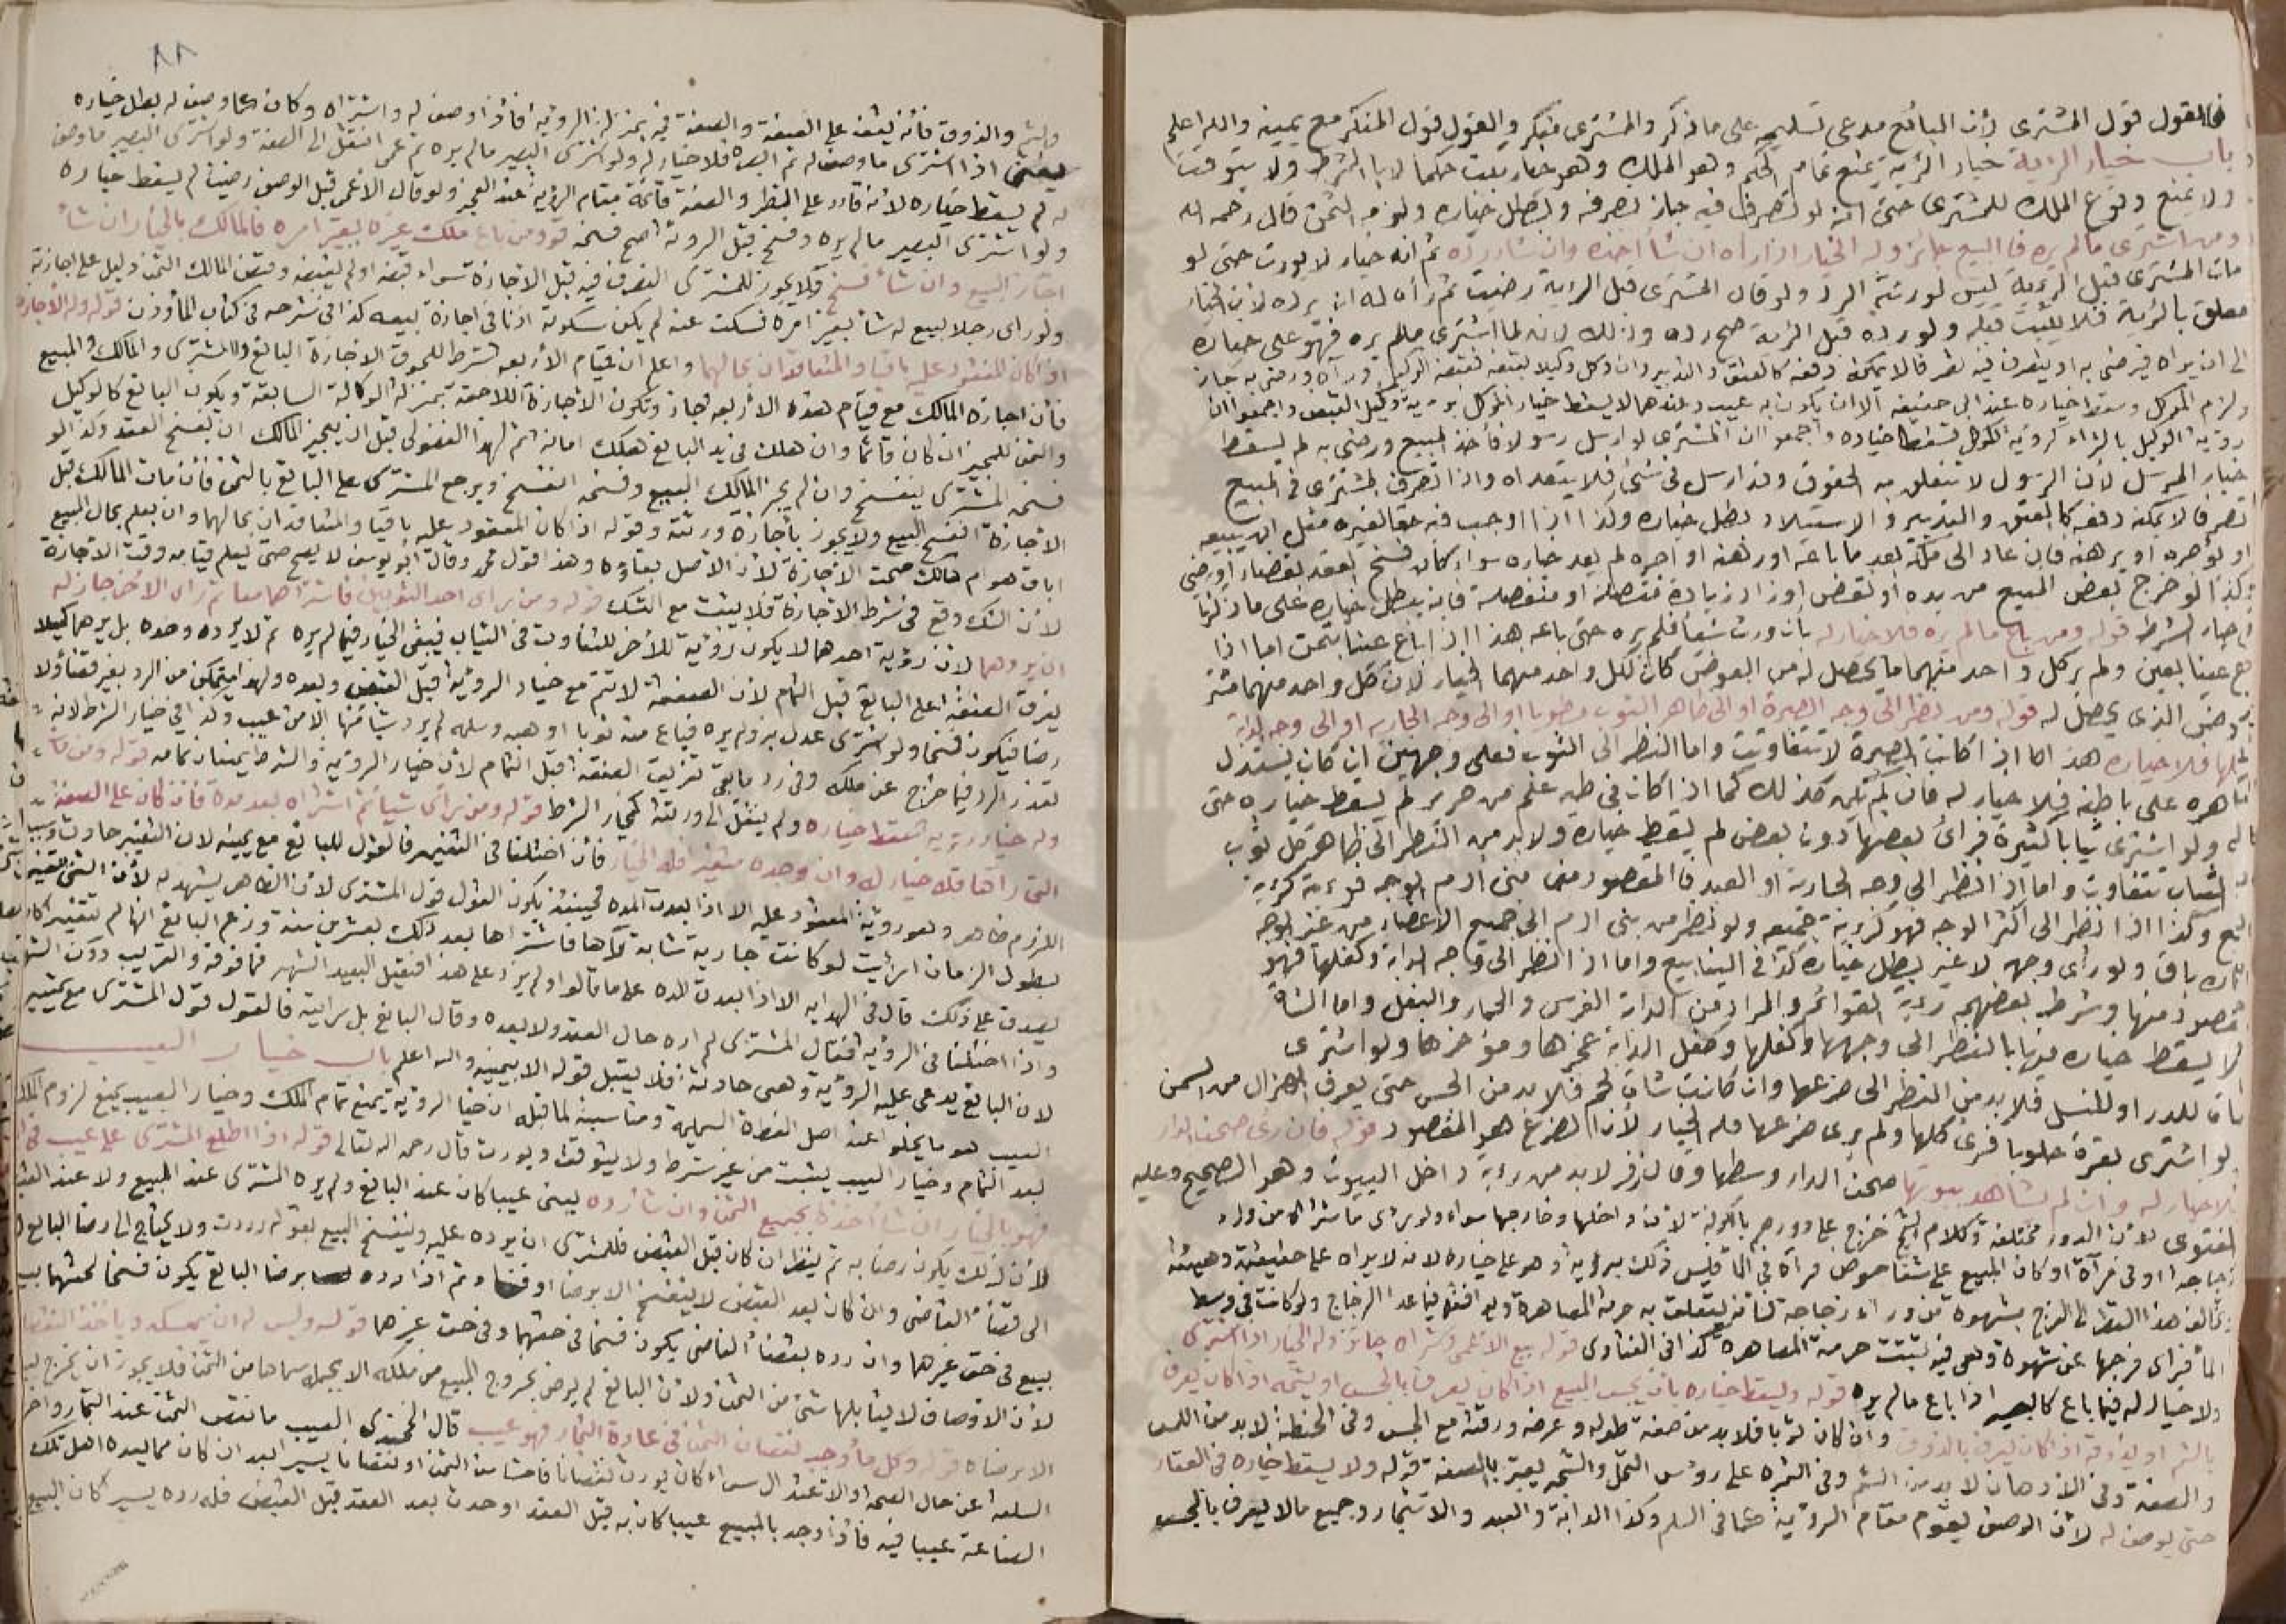 فالقول قول المشتري لأن البائع مدعي تسليمه على ما ذكر والمشتري منكر والقول قول المنكر مع يمينه والله اعلم
باب خيار الرؤية خيار الرؤية يمنع تمام الحكم وهو الملك وهو خيار يثبت حكما لا بالشرط ولا يتوقت
ولا يمنع وقوع الملك للمشتري حتى انه لو تصرف فيه جاز تصرفه وبطل خياره ولزمه الثمن قال رحمه الله
ومن اشترى مالم يره فالبيع جائز وله الخيار اذا راه ان شا اخذه وان شا رده ثم انه خيار لا يورث حتى لو
مات المشتري قبل الرؤية ليس لورثته الرد ولو قال المشتري قبل الرؤية رضيت ثم رآه له ان يرده لأن الخيار
معلق بالرؤية فلا يثبت قبله ولو رده قبل الرؤية صح رده وذلك لانه لما اشترى مالم يره فهو على خياره
الى ان يراه فيرضى به او يتصرف فيه تصرفا لا يمكنه دفعه كالعتق والتدبير وان وكل وكيلا بقبضه فقبضه الوكيل ورآه ورضي به جاز
ولزم الموكل وسقط خياره عند ابي حنيفة الا ان يكون به عيب وعندهما لا يسقط خيار الموكل برؤية وكيل القبض واجمعوا ان
رؤية الوكيل بالشراء كرؤية الموكل تسقط خياره واجمعوا ان المشتري لو ارسل رسولا فأخذ المبيع ورضي به لم يسقط
خيار المرسل لأن الرسول لا تتعلق به الحقوق وقد ارسل في شيء فلا يتعداه واذا تصرف المشتري في المبيع
تصرفا لا يمكنه دفعه كالعتق والتدبير والاستيلاد بطل خياره وكذا اذا اوجب فيه حقا لغيره مثل ان يبيعه
او يؤجره او يرهنه فان عاد الى ملكه بعد ما باعه او رهنه او اجره لم يعد خياره سواء كان فسخ العقد بقضاء او رضى
وكذا لو خرج بعض المبيع من يده او نقص او زاد زيادة متصلة او منفصلة فانه يبطل خياره على ما ذكرنا
في خيار الشرط قوله ومن باع مالم يره فلا خيار له بان ورث شيأ فلم يره حتى باعه هذا اذا باع عينا بثمن اما اذا
باع عينا بعين ولم ير كل واحد منهما ما يحصل له من العوض كان لكل واحد منهما الخيار لأن كل واحد منهما مشتر
للعوض الذي يحصل له قوله ومن نظر الى وجه الصبرة او الى ظاهر الثوب مطويا او الى وجه الجارية او الى وجه الدابة
وكفلها فلا خيار له هذا اما اذا كانت الصبرة لا تتفاوت واما النظر الى الثوب فعلى وجهين ان كان يستدل
بظاهره على باطنه فلا خيار له فان لم يكن كذلك كما اذا كان في طيه علم من حرير لم يسقط خياره حتى
يراه ولو اشترى ثيابا كثيرة فراى بعضها دون بعض لم يسقط خياره ولا بد من النظر الى ظاهر كل ثوب
لأن الثياب تتفاوت واما اذا نظر الى وجه الجارية او العبد فالمقصود من بني ادم الوجه فرؤيته كرؤية
الجميع وكذا اذا نظر الى اكثر الوجه فهو كرؤية جميعه ولو نظر من بني ادم الى جميع الاعضاء من غير الوجه
فخياره باق ولو راى وجهه لا غير بطل خياره كذا في الينابيع واما اذا نظر الى وجه الدابة وكفلها فهو
المقصود منها وشرط بعضهم رؤية القوائم والمراد من الدابة الفرس والحمار والبغل واما الشاة
فلا يسقط خياره فيها بالنظر الى وجهها وكفلها وكفل الدابة عجزها ومؤخرها ولو اشترى
شاة للدر او للنسل فلا بد من النظر الى ضرعها وان كانت شاة لحم فلا بد من الجس حتى يعرف الهزال من السمن
ولو اشترى بقرة حلوبا فرأى كلها ولم يرى ضرعها فله الخيار لأن الضرع هو المقصود قوله فان رأى صحن الدار
فلا خيار له وان لم يشاهد بيوتها صحن الدار وسطها وقال زفر لا بد من رؤية داخل البيوت وهو الصحيح وعليه
الفتوى لأن الدور مختلفة وكلام الشيخ خرج على دورهم بالكوفة لأن داخلها وخارجها سواء ولو رأى ما اشتراه من وراء
زجاجة او في مرآة او كان المبيع على شفا حوض فرآه في الماء فليس ذلك برؤية وهو على خياره لانه لا يراه على حقيقته وهيئته
ويخالف هذا النظر الى الفرج بشهوة من وراء زجاجة فانه يتعلق به حرمة المصاهرة
الماء فراى فرجها عن شهوة وهي فيه تثبت حرمة المصاهرة كذا في الفتاوى قوله بيع الاعمى وشراه جائز وله الخيار اذا اشترى
ولا خيار له فيما باع كالبصير اذا باع مالم يره قوله ويسقط خياره بان يجس المبيع اذا كان يعرف بالجس او يشمه اذا كان يعرف
بالشم او يذوقه اذا كان يعرف بالذوق وان كان ثوبا فلا بد من صفة طوله وعرضه ورقته مع الجس وفي الحنطة لا بد من اللمس
والصفة وفي الادهان لا بد من الشم وفي الثمرة على رؤس النخل والشجر يعتبر بالصفة قوله ولا يسقط خياره في العقار
حتى يوصف له لأن الوصف يقوم مقام الرؤية كما في السلم وكذا الدابة والعبد والاشجار وجميع مالا يعرف بالجس
٨٨
والشم والذوق فانه يقف على الصفة والصفة فيه بمنزلة الرؤية فاذا وصف له واشتراه وكان كما وصف له بطل خياره
يعني اذا اشترى ما وصف له ثم ابصر فلا خيار له ولو اشترى البصير مالم يره ثم عمى انتقل الى الصفة ولو اشترى البصير ما وصف
له لم يسقط خياره لانه قادر على النظر والصفة قائمة مقام الرؤية عند العجز ولو قال الاعمى قبل الوصف رضيت لم يسقط خياره
ولو اشترى البصير مالم يره وفسخ قبل الرؤية صح فسخه قوله ومن باع ملك غيره بغير امره فالمالك بالخيار ان شا
اجاز البيع وان شا فسخ فلا يجوز للمشتري التصرف فيه قبل الاجازة سواء قبضه او لم يقبضه وقبض المالك الثمن دليل على اجازته
ولو راى رجلا يبيع له شيأ بغير امره فسكت عنه لم يكن سكوته اذنا في اجازة بيعه كذا في شرحه في كتاب المأذون قوله وله الاجازة
اذا كان المعقود عليه باقيا والمتعاقدان بحالهما واعلم ان قيام الأربعة شرط للحوق الاجازة البائع والمشتري والمالك والمبيع
فان اجازه المالك مع قيام هذه الأربعة جاز وتكون الاجازة اللاحقة بمنزلة الوكالة السابقة ويكون البائع كالوكيل
والثمن للمجيز ان كان قائما وان هلك في يد البائع هلك امانة ثم لهذا الفضولي قبل ان يجيز المالك ان يفسخ العقد وكذا لو
فسخه المشتري ينفسخ وان لم يجز المالك البيع وفسخه انفسخ ويرجع المشتري على البائع بالثمن فان مات المالك قبل
الاجازة انفسخ البيع ولا يجوز باجازة ورثته وقوله اذا كان المعقود عليه باقيا والمتعاقدان بحالهما وان لم يعلم بحال المبيع
اباق هو ام هالك صحت الاجازة لأن الأصل بقاؤه وهذا قول محمد وقال ابو يوسف لا يصح حتى يعلم قيامه وقت الاجازة
لأن الشك وقع في شرط الاجازة فلا يثبت مع الشك قوله ومن راى احد الثوبين فاشتراهما معا ثم راى الآخر جاز له
ان يردهما لأن رؤية احدهما لا يكون رؤية للأخر للتفاوت في الثياب فبقى الخيار فيما لم يره ثم لا يرده وحده بل يردهما كيلا
يفرق الصفقة على البائع قبل التمام لأن الصفقة لا تتم مع خيار الرؤية قبل القبض وبعده ولهذا يتمكن من الرد بغير قضاء ولا
رضا فيكون فسخا ولو اشترى عدل بز ولم يره فباع منه ثوبا او وهبه وسلمه لم يرد شيأ منها الا من عيب وكذا في خيار الشرط لأنه
تعذر الرد فيما خرج عن ملكه وفي رد ما بقي تفريق الصفقة قبل التمام لأن خيار الرؤية والشرط يمنعان تمامه قوله ومن مات
وله خيار رؤية سقط خياره ولم ينتقل الى ورثته كخيار الشرط قوله ومن راى شيأ ثم اشتراه بعد مدة فان كان على الصفة
التي راها فلا خيار له وان وجده متغيرا فله الخيار فان اختلفا في التغير فالقول للبائع مع يمينه لأن التغير حادث وسبب
اللزوم ظاهر وهو رؤية المعقود عليه الا اذا بعدت المدة فحينئذ يكون القول قول المشتري لأن الظاهر يشهد له لأن الشيء يتغير
بطول الزمان ارأيت لو كانت جارية شابة رآها فاشتراها بعد ذلك بعشرين سنة وزعم البائع انها لم تتغير اكان
يصدق على ذلك قال في الهداية الا اذا بعدت المدة على ما قالوا ولم يزد على هذا فقيل البعيد الشهر فما فوقه والقريب دون الشهر
واذا اختلفا في الرؤية فقال المشتري لم اره حال العقد ولا بعده وقال البائع بل رايته فالقول قول المشتري مع يمينه
لأن البائع يدعى عليه الرؤية وهي حادثة فلا يقبل قوله الا ببينة والله اعلم باب خيار العيب
العيب هو ما يخلوا عنه اصل الفطرة السليمة ومناسبته لما قبله ان خيار الرؤية يمنع تمام الملك وخيار العيب يمنع لزوم الملك
بعد التمام وخيار العيب يثبت من غير شرط ولا يتوقت ويورث قال رحمه الله تعالى قوله اذا اطلع المشتري على عيب في
فهو بالخيار ان شا اخذه بجميع الثمن وان شا رده يعني عيبا كان عند البائع ولم يره المشتري عند البيع ولا عند القبض
لأن ذلك يكون رضا به ثم ينظر ان كان قبل القبض فللمشتري ان يرده عليه وينفسخ البيع بقوله رددت ولا يحتاج الى رضا البائع ولا
الى قضاء القاضي وان كان بعد القبض لا ينفسخ الا برضا او قضاء ثم اذا رده برضا البائع يكون فسخا في حقهما
بيع في حق غيرهما وان رده بقضاء القاضي يكون فسخا في حقهما وفي حق غيرهما قوله وليس له ان يمسكه ويأخذ النقصان
لأن الاوصاف لا يقابلها شيء من الثمن ولأن البائع لم يرض بخروج المبيع من ملكه الا بجملة سماها من الثمن فلا يجوز ان يخرج
الا برضاه قوله وكل ما اوجب نقصان الثمن في عادة التجار فهو عيب قال الخجندي العيب ما نقص الثمن عند التجار واخرج
السلعة عن حال الصحة والاعتدال سواء كان يورث نقصانا فاحشا من الثمن او نقصانا يسيرا بعد ان كان مما يعده اهل تلك
الصناعة عيبا فيه فاذا وجد بالمبيع عيبا كان به قبل العقد او حدث بعد العقد قبل القبض فله رده يسيرا كان العيب